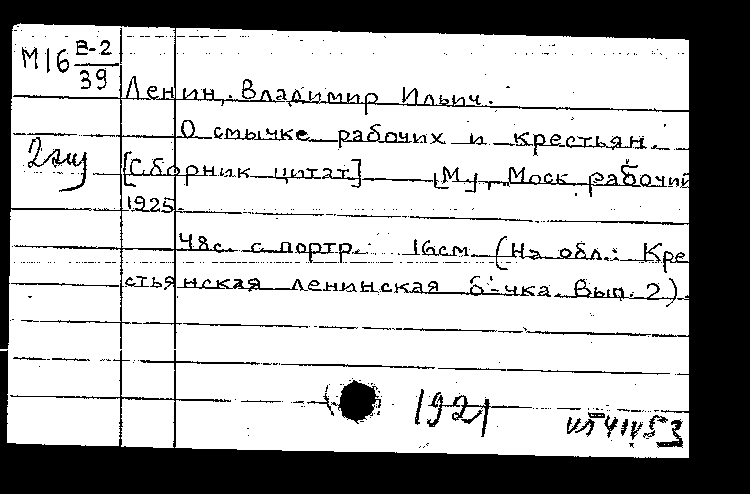 М16 В-2
39
Ленин, Владимир Ильич.
О смычке рабочих и крестьян.
2 экз
[Сборник цитат] [М.], Моск. рабочий
1925.
48с. с портр. 16см. (На обл.: Кре
стьянская ленинская б-чка. Вып. 2).
1921